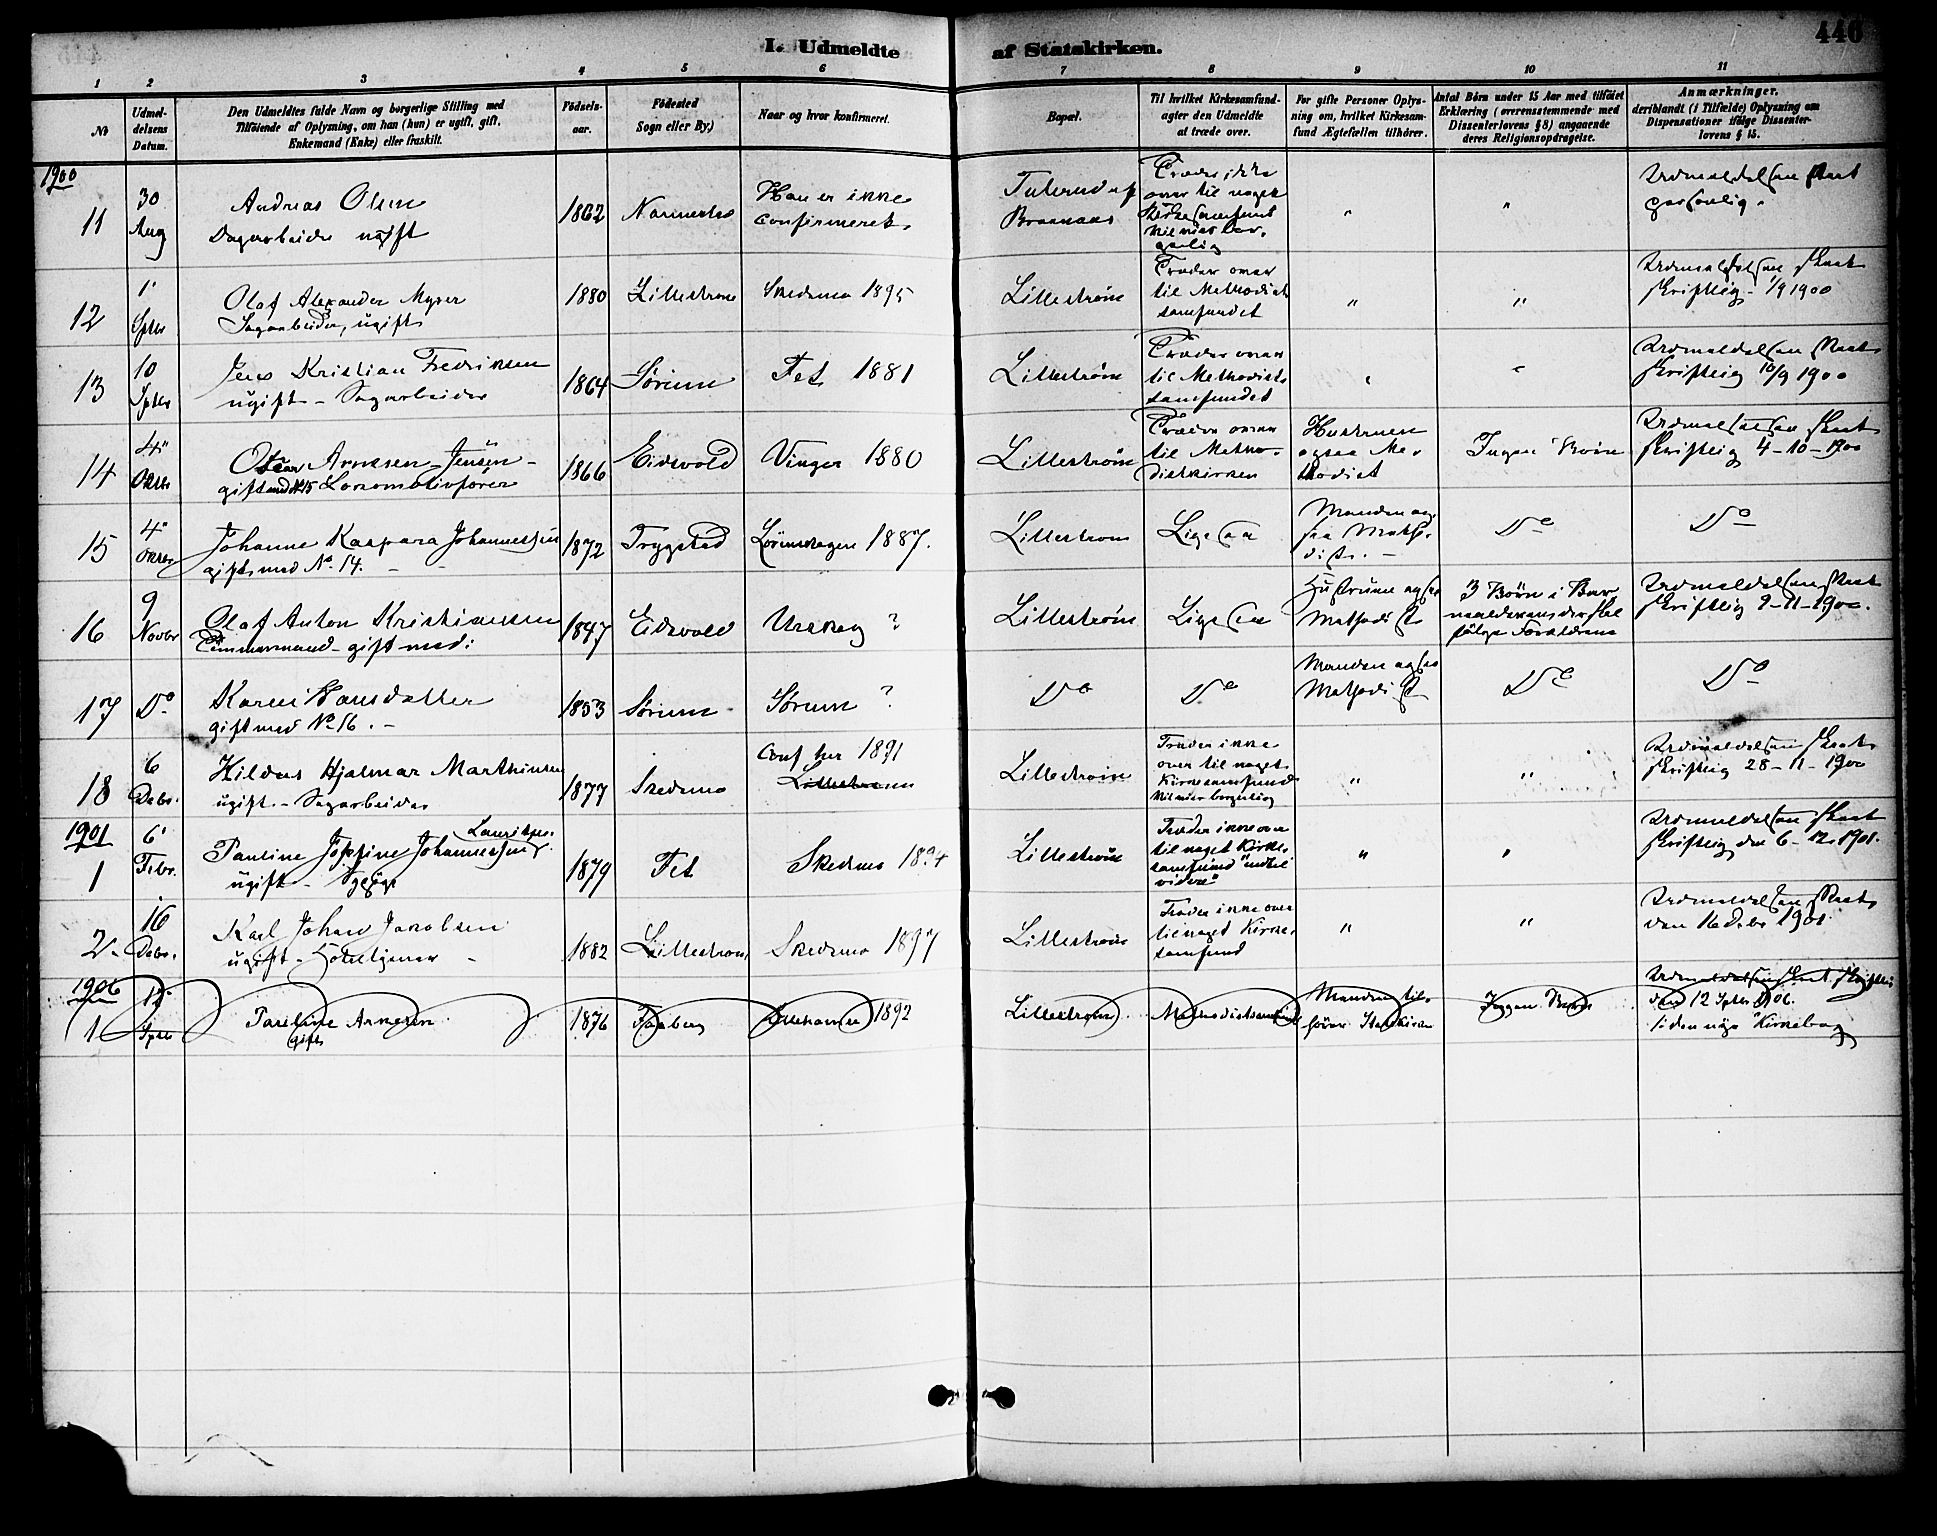 I. Udmeldte af Statskirken.
446
1 2 3 4 5 6 7 8 9 10 11
No
Udmeldelsens Datum.
Den Udmeldtes fulde Navn og borgerlige Stilling med
Tilföiende af Oplysning, om han (hun) er ugift, gift,
Enkemand (Enke) eller fraskilt.
Födselsaar.
Födested
Sogn eller By.)
Naar og hvor konfirmeret.
Bopæl.
Til hvilket Kirkesamfund-
agter den Udmeldte
at træde over.
For gifte Personer Oplys-
ning om, hvilket Kirkesam-
fund Ægtefællen tilhører.
Antal Börn under 15 Aar med tilföiet
Erklæring (overensstemmende med
Dissenterlovens § 8) angaaende
deres Religionsopdragelse.
Anmærkninger,
deriblandt (i Tilfælde) Oplysning om
Dispensationer ifölge Dissenter-
lovens § 15.
1900
11
30 Aug
Andreas Olsen
Dagarbeider ugift
1862
Nannestad
Han er ikke
confirmeret.
Braanaas
Træder ikke
over til noget
Kirkesamfund
Vil vies bor-
gerlig
"
"
Udmeldelsen skeet
personlig.
12
1' Sptbr
Olaf Alexander Myrer
Sagarbeider, ugift
1880
Lillestrøm
Skedsmo 1895
Lillestrøm
Træder over
til Methodist
samfundet
"
"
Udmeldelsen skeet
skriftlig 1/9 1900
13
10 Sptbr
Jens Kristian Fredriksen
ugift - Sagarbeider
1864
Sørum
Fet 1881
Lillestrøm
Træder over
til Methodist
samfundet
"
"
Udmeldelsen skeet
skriftlig 10/9 1900
14
4" Oktbr
Oscar Arnesen-Jensen-
gift med No 15 Lokomotivfører
1866
Eidsvold
Vinger 1880
Lillestrøm
Træder over
til Metho-
distkirken
Hustruen
ogsaa Me-
thodist
Ingen Børn
Udmeldelsen skeet
skriftlig 4-10-1900
15
4" Oktbr
Johanne Kaspara Johannessen
gift med No 14. - -
1872
Trygstad
1887.
Lillestrøm
Ligesaa
Manden og-
saa Metho-
dist. -
Do
Do
16
9 Novbr
Olaf Anton Kristiansen
Tømmermand - gift med:
1847
Eidsvold
Urskog ?
Lillestrøm
Ligesaa
Hustruen ogsaa
Methodist
3 Børn i Bar-
nealderen der skal
følge Forældrene
Udmeldelsen skeet
skriftlig 9-11-1900.
17
Do
Karen Hansdatter
gift med No 16. -
1853
Sørum
Sørum ?
Do
Do
Manden ogsaa
Methodist
Do
Do
18
6 Debr.
Hildus Hjalmar Marthinsen
ugift. - Sagarbeider
1877
Skedsmo
Conf her 1891
Lillestrøm
Lillestrøm
Træder ikke
over til noget
Kirkesamfund
Vil vies borgerlig
"
"
Udmeldelsen skeet
skriftlig 28-11-1900
1901
1
6' Febr.
Pauline Josefine Johannessen
ugift -
1879
Fet
Skedsmo 1894
Lillestrøm
Træder ikke over
til noget Kirke-
samfund "indtil
videre"
"
"
Udmeldelsen skeet
skriftlig den 6-12-1901.
2
16 Debr.
Karl Johan Jakobsen
ugift - Hoteltjener -
1882
Lillestrøm
Skedsmo 1897
Lillestrøm
Træder ikke over
til noget Kirke-
samfund
"
"
Udmeldelsen skeet
den 16 Debr 1901.
1906
1
12 Sptbr
Pauline Arnesen
gift
1876
Faaberg
1892
Lillestrøm
Methodistsamfund
Manden til-
hører Statskirken
Ingen Børn
Udmeldelsen skeet skriftlig
den 12 Sptbr 1906.
i den nye Kirkebog